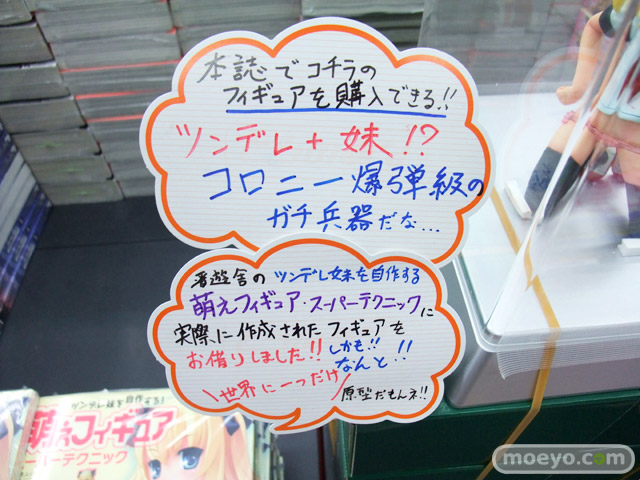 本誌でコチラの
フィギュアを購入できる!!
ツンデレ+妹!?
コロニー爆弾級の
ガチ兵器だな...
晋遊舎のツンデレ妹を自作する
萌えフィギュア・スーパーテクニックに
実際に作成されたフィギュアを
お借りしました!!しかも!!なんと!!
世界に一つだけ
原型だもんネ!!
ツンデレ妹を自作する!
萌えフィギュア
ーパーテクニック
moeyo.com